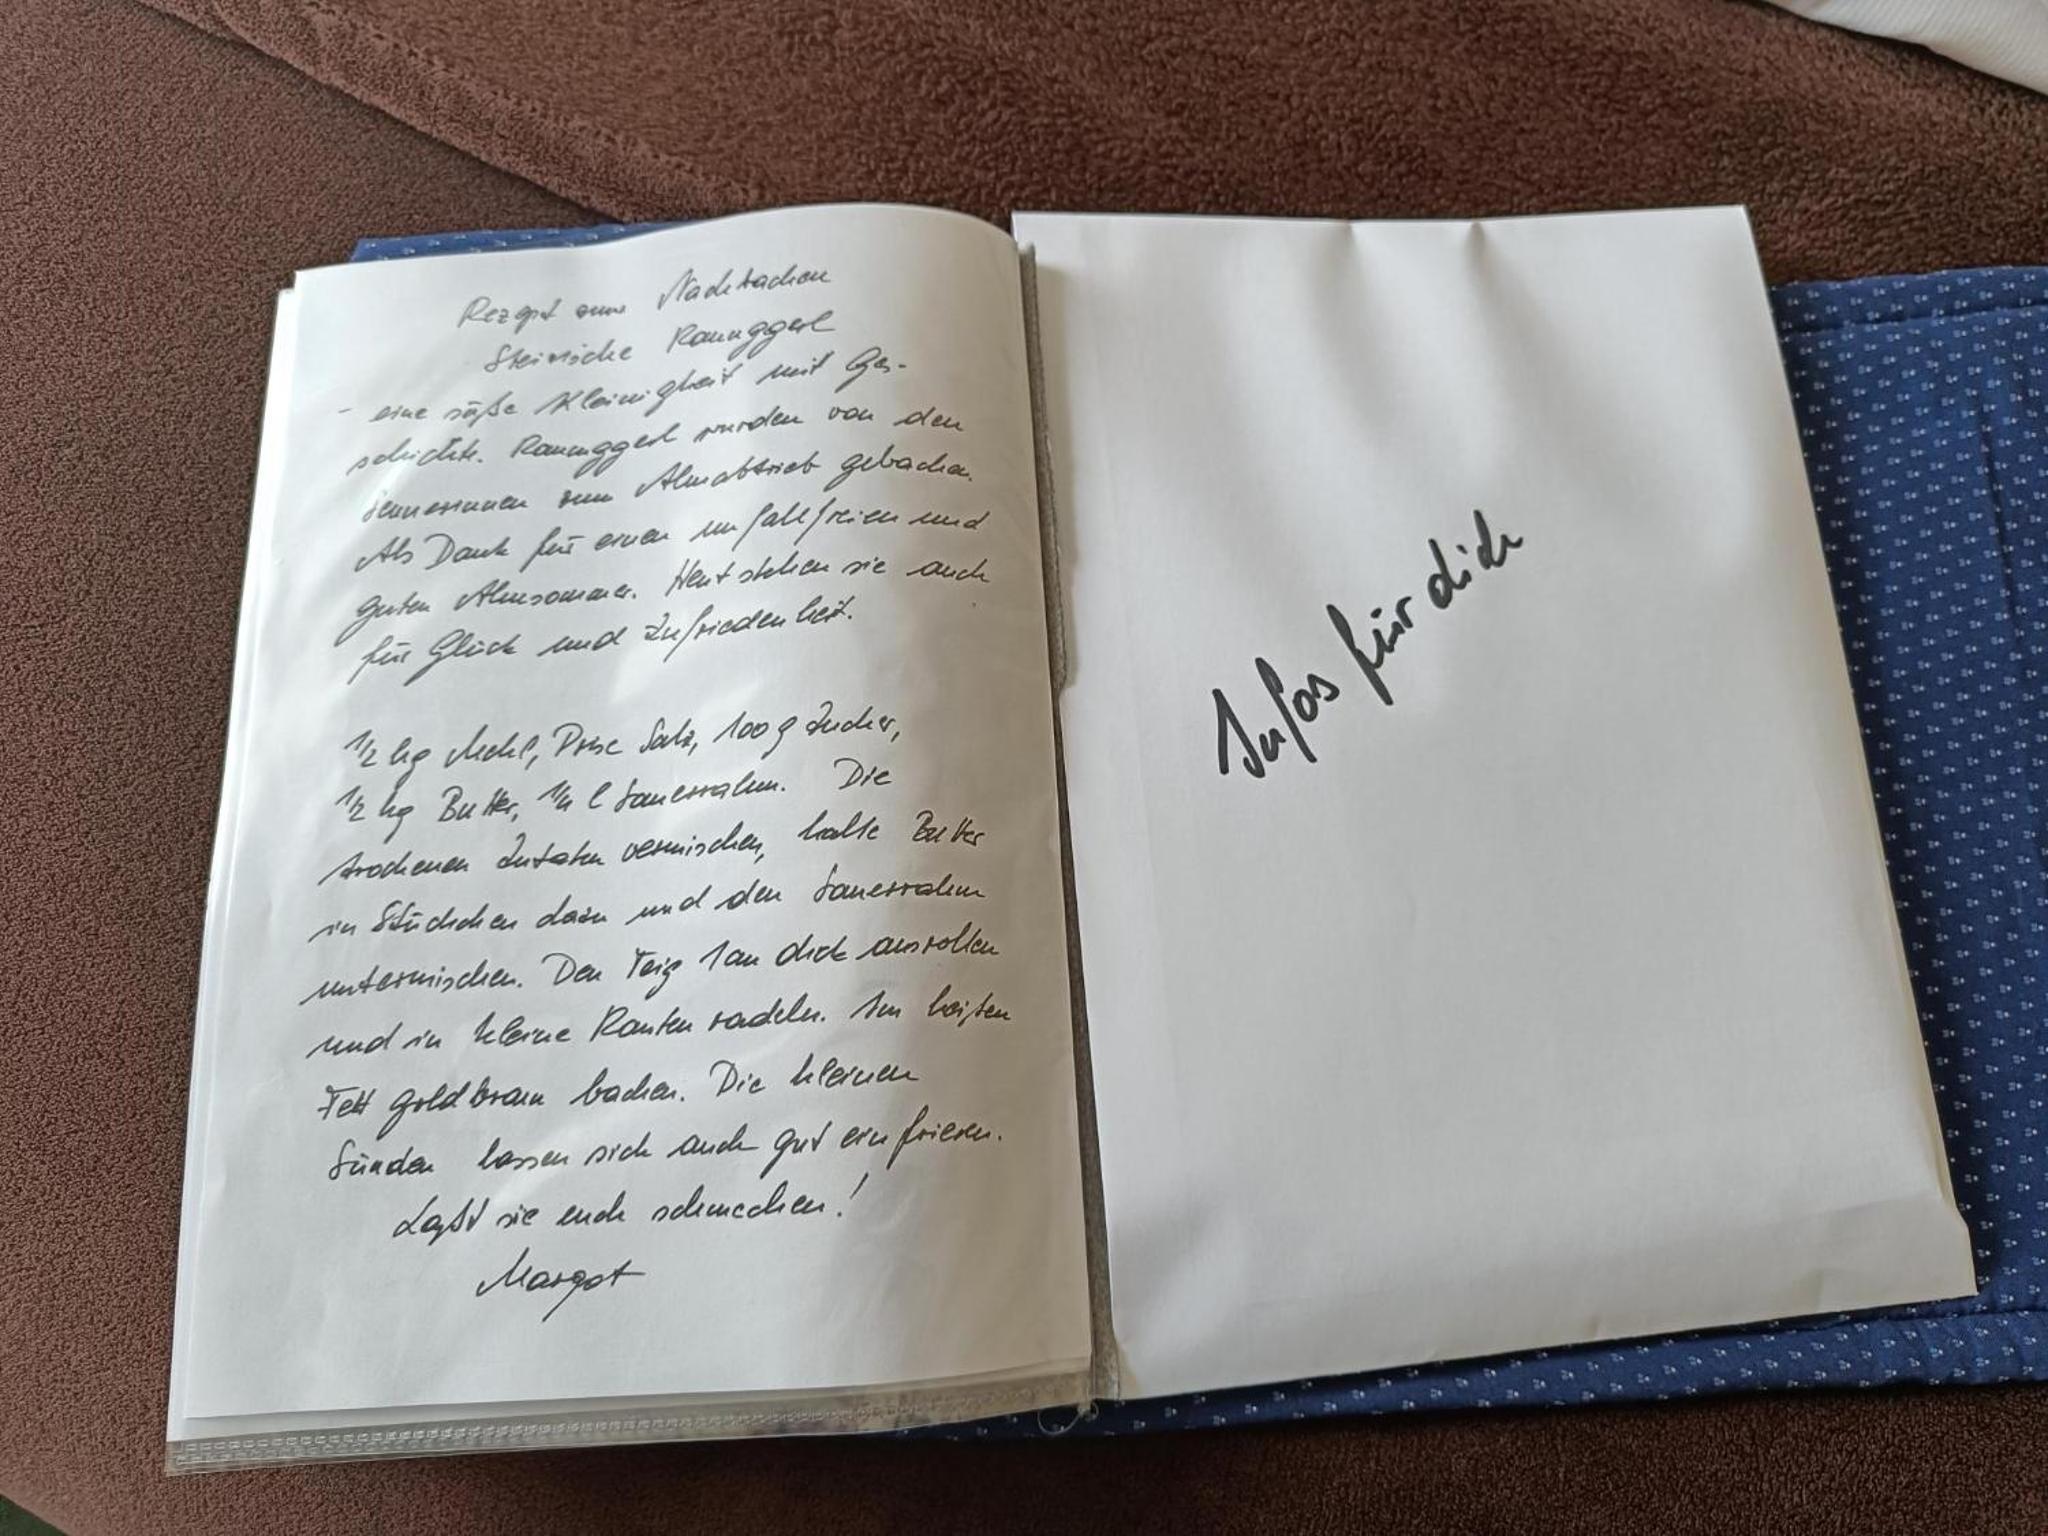 Rezept zum Nachbacken
Steirische Raunggerl
- eine süße Kleinigkeit mit Ges-
schichte. Raunggerl wurden von den
Sennerinnen zum Almabtrieb gebacken.
Als Dank für einen unfallfreien und
guten Almsommer. Heut stehen sie auch
für Glück und Zufriedenheit.
1/2 kg Mehl, Prise Salz, 100 g Zucker,
1/2 kg Butter, 1/4 l Sauerrahm. Die
trockenen Zutaten vermischen, kalte Butter
in Stückchen dazu und den Sauerrahm
untermischen. Den Teig 1 cm dick ausrollen
und in kleine Rauten radeln. Im heißen
Fett goldbraun backen. Die kleinen
Sünden lassen sich auch gut einfrieren.
Laßt sie euch schmecken!
Margot
Infos für dich